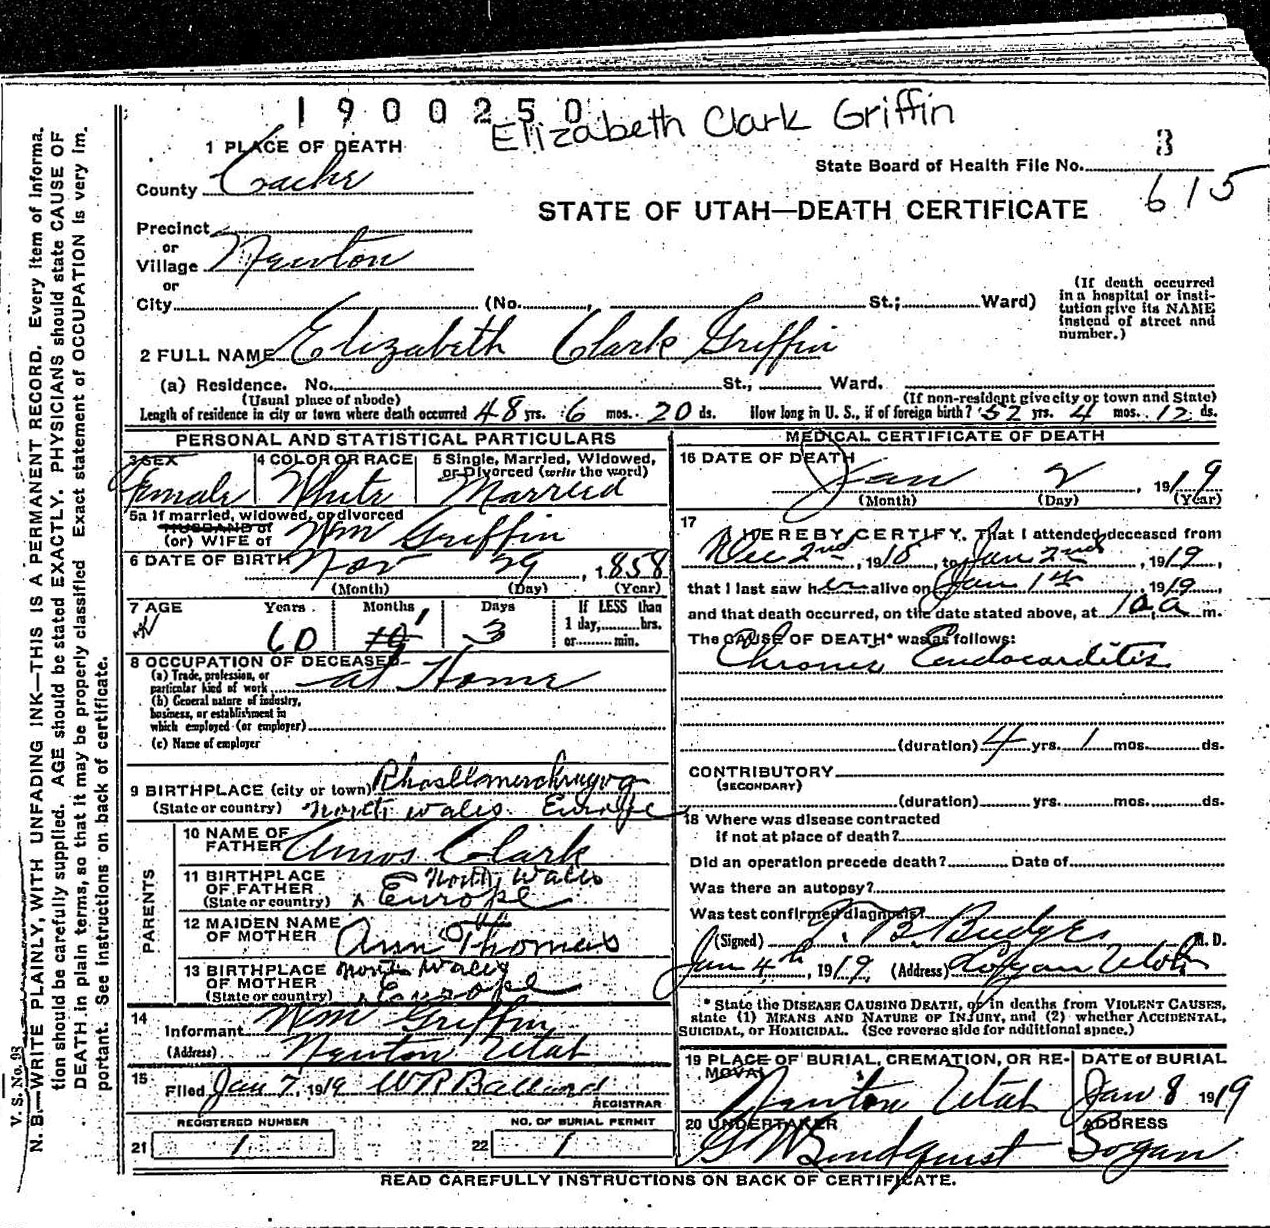 1900250
Elizabeth Clark Griffin
1 PLACE OF DEATH
State Board of Health File No. 3
615
County Cache
STATE OF UTAH—DEATH CERTIFICATE
Precinct
or
Village Newton
or
City (No. , St.; Ward)
(If death occurred
in a hospital or insti-
tution give its NAME
instead of street and
number.)
2 FULL NAME Elizabeth Clark Griffin
(a) Residence. No. St., Ward.
(Usual place of abode) (If non-resident give city or town and State)
Length of residence in city or town where death occurred 48 yrs. 6 mos. 20 ds. How long in U. S., if of foreign birth? 52 yrs. 4 mos. 12 ds.
PERSONAL AND STATISTICAL PARTICULARS
3 SEX
Female
4 COLOR OR RACE
White
5 Single, Married, Widowed,
or Divorced (write the word)
Married
5a If married, widowed, or divorced
HUSBAND of
(or) WIFE of Wm Griffin
6 DATE OF BIRTH Nov 29, 1858
(Month) (Day) (Year)
7 AGE Years Months Days If LESS than
1 day, hrs.
or min.
60 1 3
8 OCCUPATION OF DECEASED
(a) Trade, profession, or
particular kind of work at Home
(b) General nature of industry,
business, or establishment in
which employed (or employer)
(c) Name of employer
9 BIRTHPLACE (city or town)
(State or country) North Wales Europe
PARENTS
10 NAME OF
FATHER Amos Clark
11 BIRTHPLACE
OF FATHER
(State or country) North Wales
Europe
12 MAIDEN NAME
OF MOTHER Ann Thomas
13 BIRTHPLACE
OF MOTHER
(State or country) North Wales
Europe
14
Informant Wm Griffin
(Address) Newton Utah
15
Filed Jan 7, 1919 W R Ballard
REGISTRAR
REGISTERED NUMBER
21 1
NO. OF BURIAL PERMIT
22 1
MEDICAL CERTIFICATE OF DEATH
16 DATE OF DEATH
Jan 2, 1919
(Month) (Day) (Year)
17
I HEREBY CERTIFY, That I attended deceased from
Dec 2nd, 1918, to Jan 2nd, 1919,
that I last saw her alive on Jan 1st 1919,
and that death occurred, on the date stated above, at 10 a m.
The CAUSE OF DEATH* was as follows:
Chronic Endocarditis
(duration) 4 yrs. 1 mos. ds.
CONTRIBUTORY
(SECONDARY)
(duration) yrs. mos. ds.
18 Where was disease contracted
if not at place of death?
Did an operation precede death? Date of
Was there an autopsy?
Was test confirmed diagnosis?
(Signed) T. B. Budge M. D.
Jan 4th, 1919 (Address) Logan Utah
* State the DISEASE CAUSING DEATH, or in deaths from VIOLENT CAUSES,
state (1) MEANS AND NATURE OF INJURY, and (2) whether ACCIDENTAL,
SUICIDAL, or HOMICIDAL. (See reverse side for additional space.)
19 PLACE OF BURIAL, CREMATION, OR RE-
MOVAL
Newton Utah
DATE of BURIAL
Jan 8 1919
20 UNDERTAKER
G W Lindquist
ADDRESS
Logan
READ CAREFULLY INSTRUCTIONS ON BACK OF CERTIFICATE.
V. S. No. 98
N. B.—WRITE PLAINLY, WITH UNFADING INK—THIS IS A PERMANENT RECORD. Every item of informa-
tion should be carefully supplied. AGE should be stated EXACTLY. PHYSICIANS should state CAUSE OF
DEATH in plain terms, so that it may be properly classified. Exact statement of OCCUPATION is very im-
portant. See instructions on back of certificate.